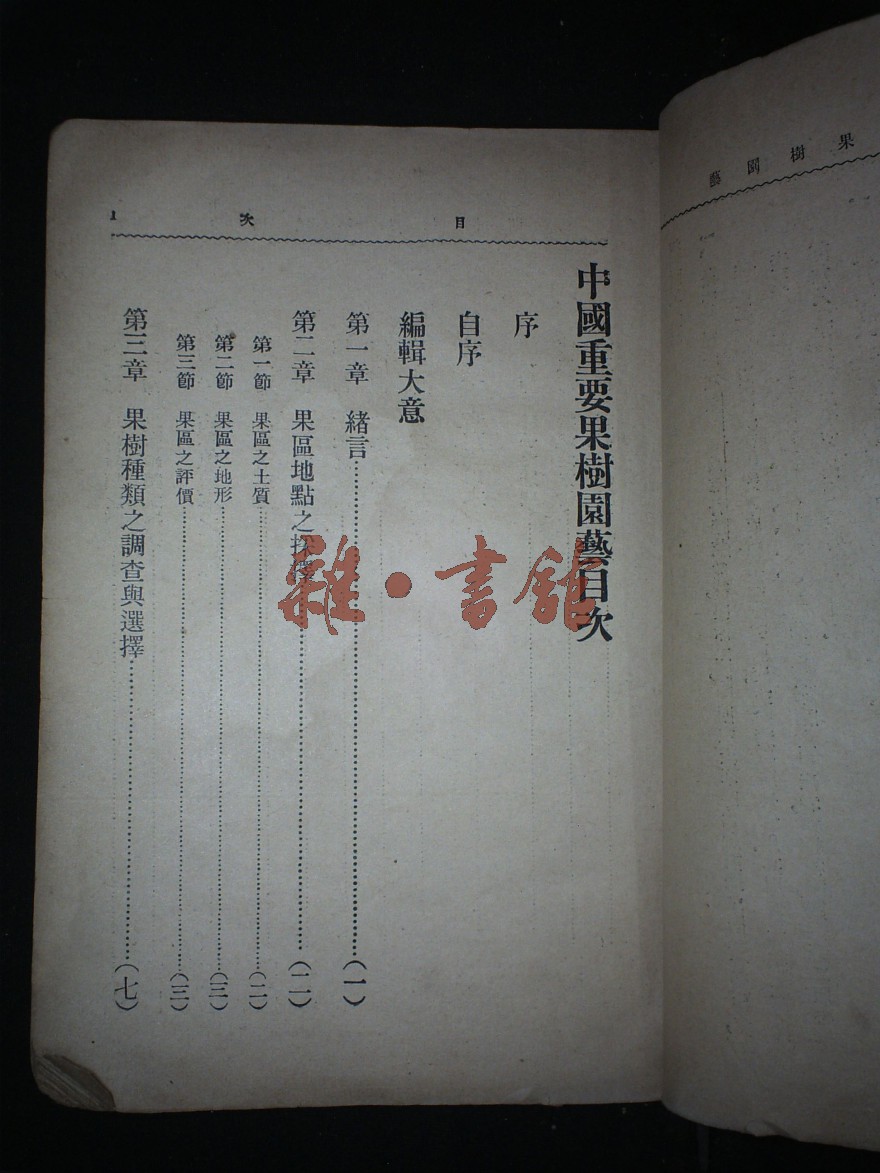 果樹園藝
目次 1
中國重要果樹園藝目次
序
自序
編輯大意
第一章 緒言……(一)
第二章 果區地點之採擇……(二)
第一節 果區之土質……(二)
第二節 果區之地形……(三)
第三節 果區之評價……(三)
第三章 果樹種類之調查與選擇……(七)
雜·書舘